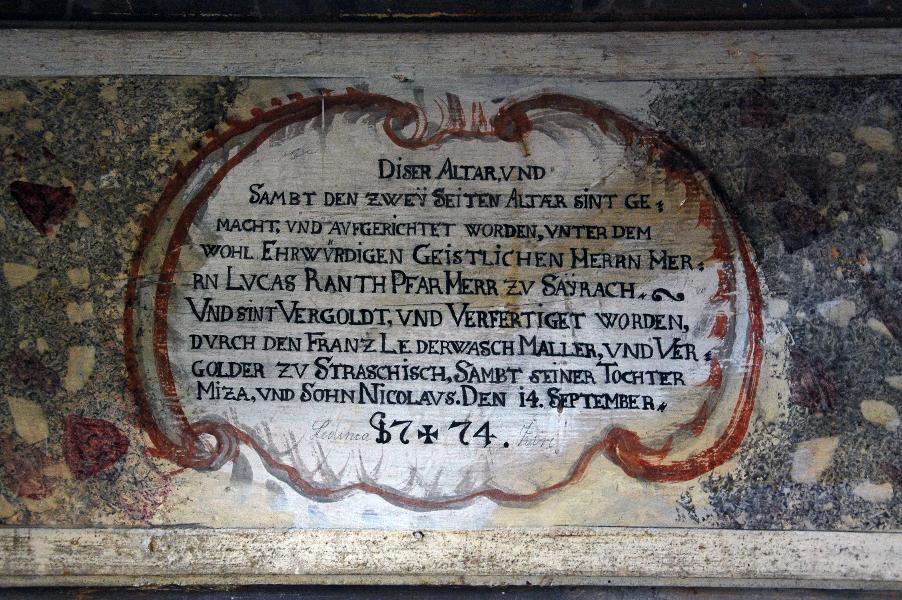 DISER ALTAR, VND
SAMBT DEN ZWEŸ SEITEN ALTÆR SINT GE:
MACHT, VND AUFGERICHTET WORDEN, VNTER DEM
WOHL EHRWÜRDIGEN GEISTLICHEN HERRN MER:
RN LVCAS RANTH PFARHERR ZV SAŸRACH.
VND SINT VERGOLDT, VND VERFERTIGET WORDEN,
DVRCH DEN FRANZ LEDERWASCH MALLER, VND VER:
GOLDER ZV STRASCHISCH, SAMBT SEINER TOCHTER
MIZA, VND SOHN NICOLAVS. DEN 14. SEPTEMBER.
17+74.